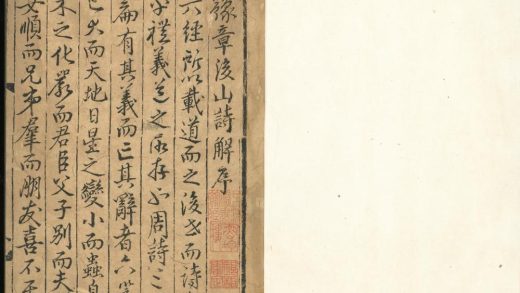 豫章後山詩解序
六經所以載道而之後世而詩
乎禮義道之所存也周詩三
篇有其義而亡其辭者六篇
已大而天地日星之變小而蟲
木之化嚴而君臣父子別而夫
女順而兄弟羣而朋友喜不至